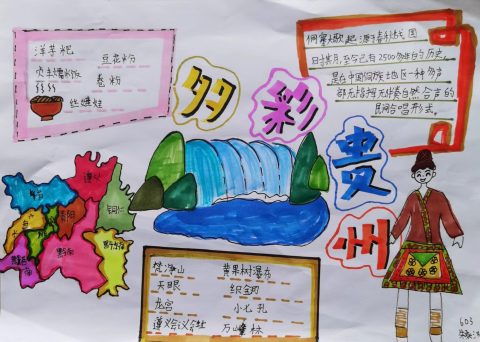 洋芋粑 豆花粉
卷粉
娃娃
大歌起源于春秋战国
至今已有2500多年的历史,
是在中国侗族地区一种多声
部无指挥无伴奏自然合声的
民间合唱形式。
多彩贵州
遵义
毕节
铜仁
贵阳
黔南
黔东南
梵净山 黄果树瀑布
天眼 织金洞
龙宫 小七孔
遵义会议会址 万峰林
603